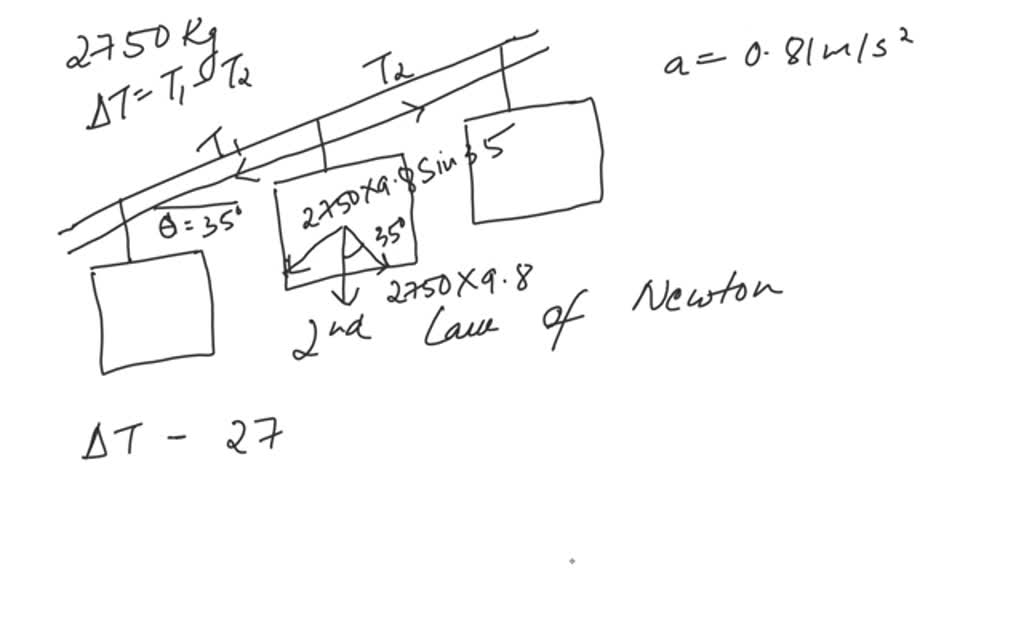 2750 Kg
ΔT = T₁ - T₂
a = 0.81 m/s²
T₂
T₁
θ = 35°
2750 × 9.8 Sin 35
35°
2750 × 9.8
2nd Law of Newton
ΔT - 27